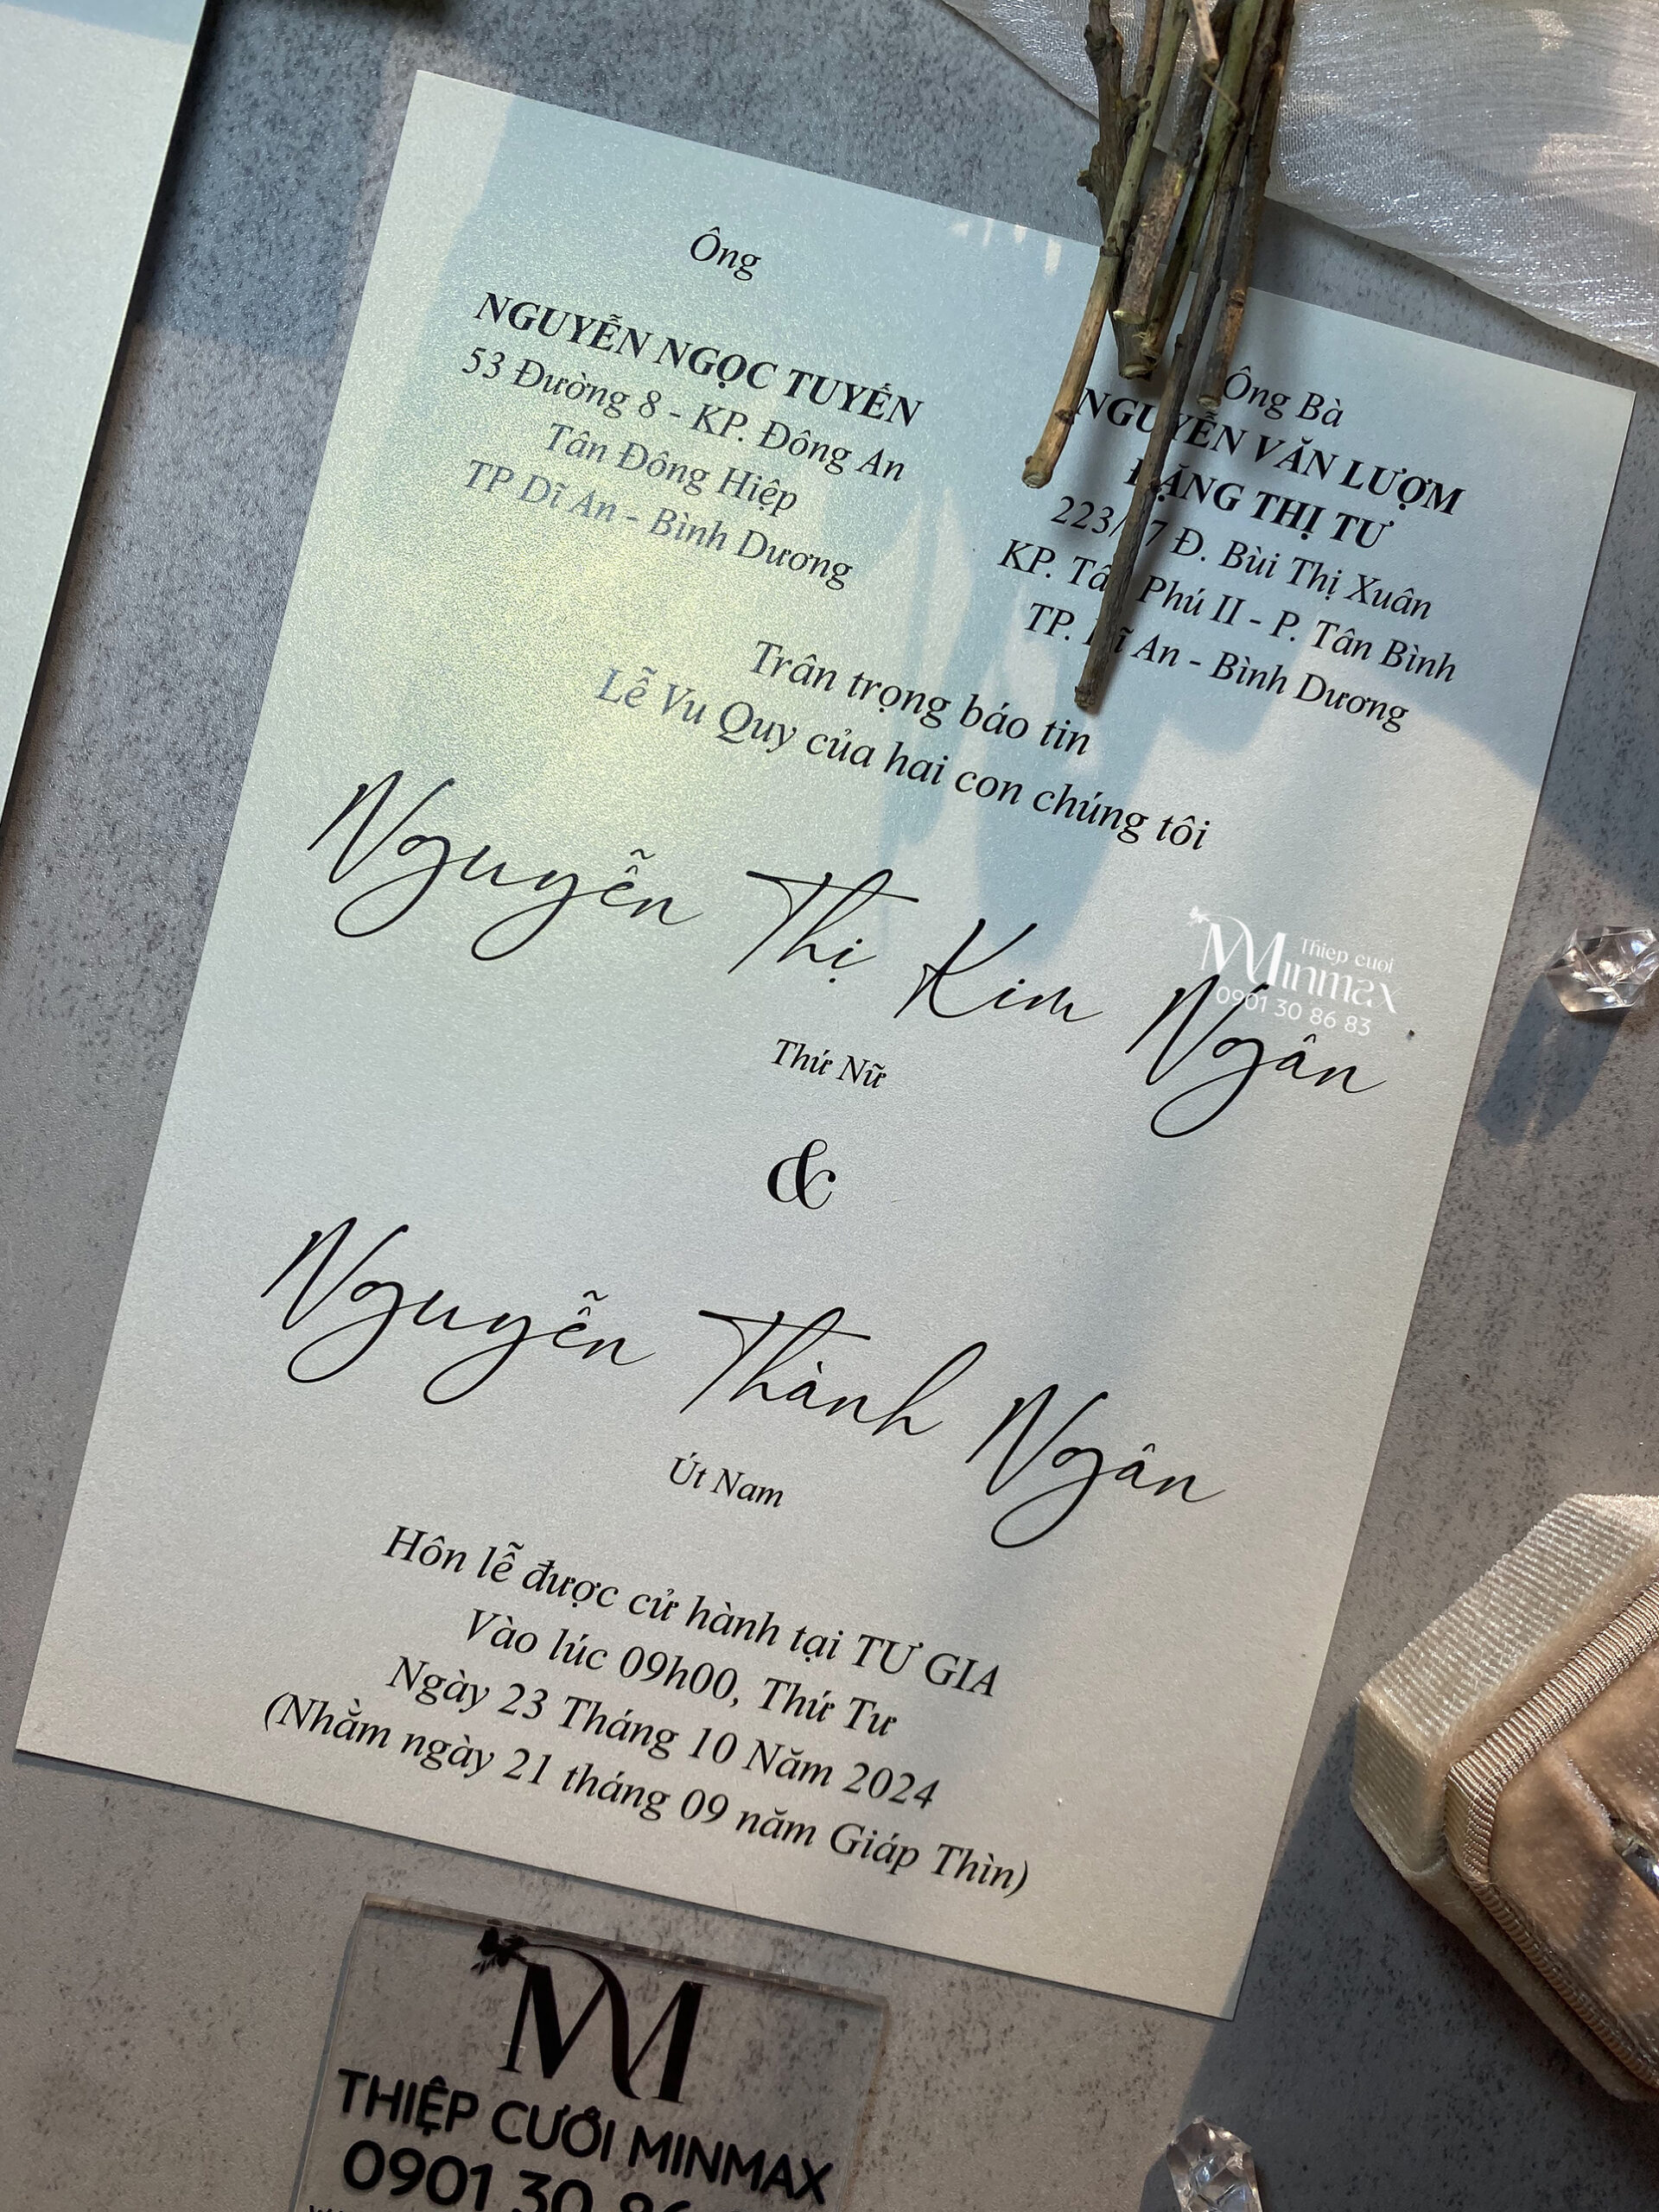 Ông
NGUYỄN NGỌC TUYỂN
53 Đường 8 - KP. Đông An
Tân Đông Hiệp
TP Dĩ An - Bình Dương
Ông Bà
NGUYỄN VĂN LƯỢM
ĐẶNG THỊ TƯ
Đ. Bùi Thị Xuân
KP. Tân Phú II - P. Tân Bình
TP. Dĩ An - Bình Dương
Trân trọng báo tin
Lễ Vu Quy của hai con chúng tôi
Nguyễn Thị Kim Ngân
Thứ Nữ
&
Nguyễn Thành Ngân
Út Nam
Hôn lễ được cử hành tại TƯ GIA
Vào lúc 09h00, Thứ Tư
Ngày 23 Tháng 10 Năm 2024
(Nhằm ngày 21 tháng 09 năm Giáp Thìn)
Thiep cuoi
Minmax
0901 30 86 83
M
THIỆP CƯỚI MINMAX
0901 30 86